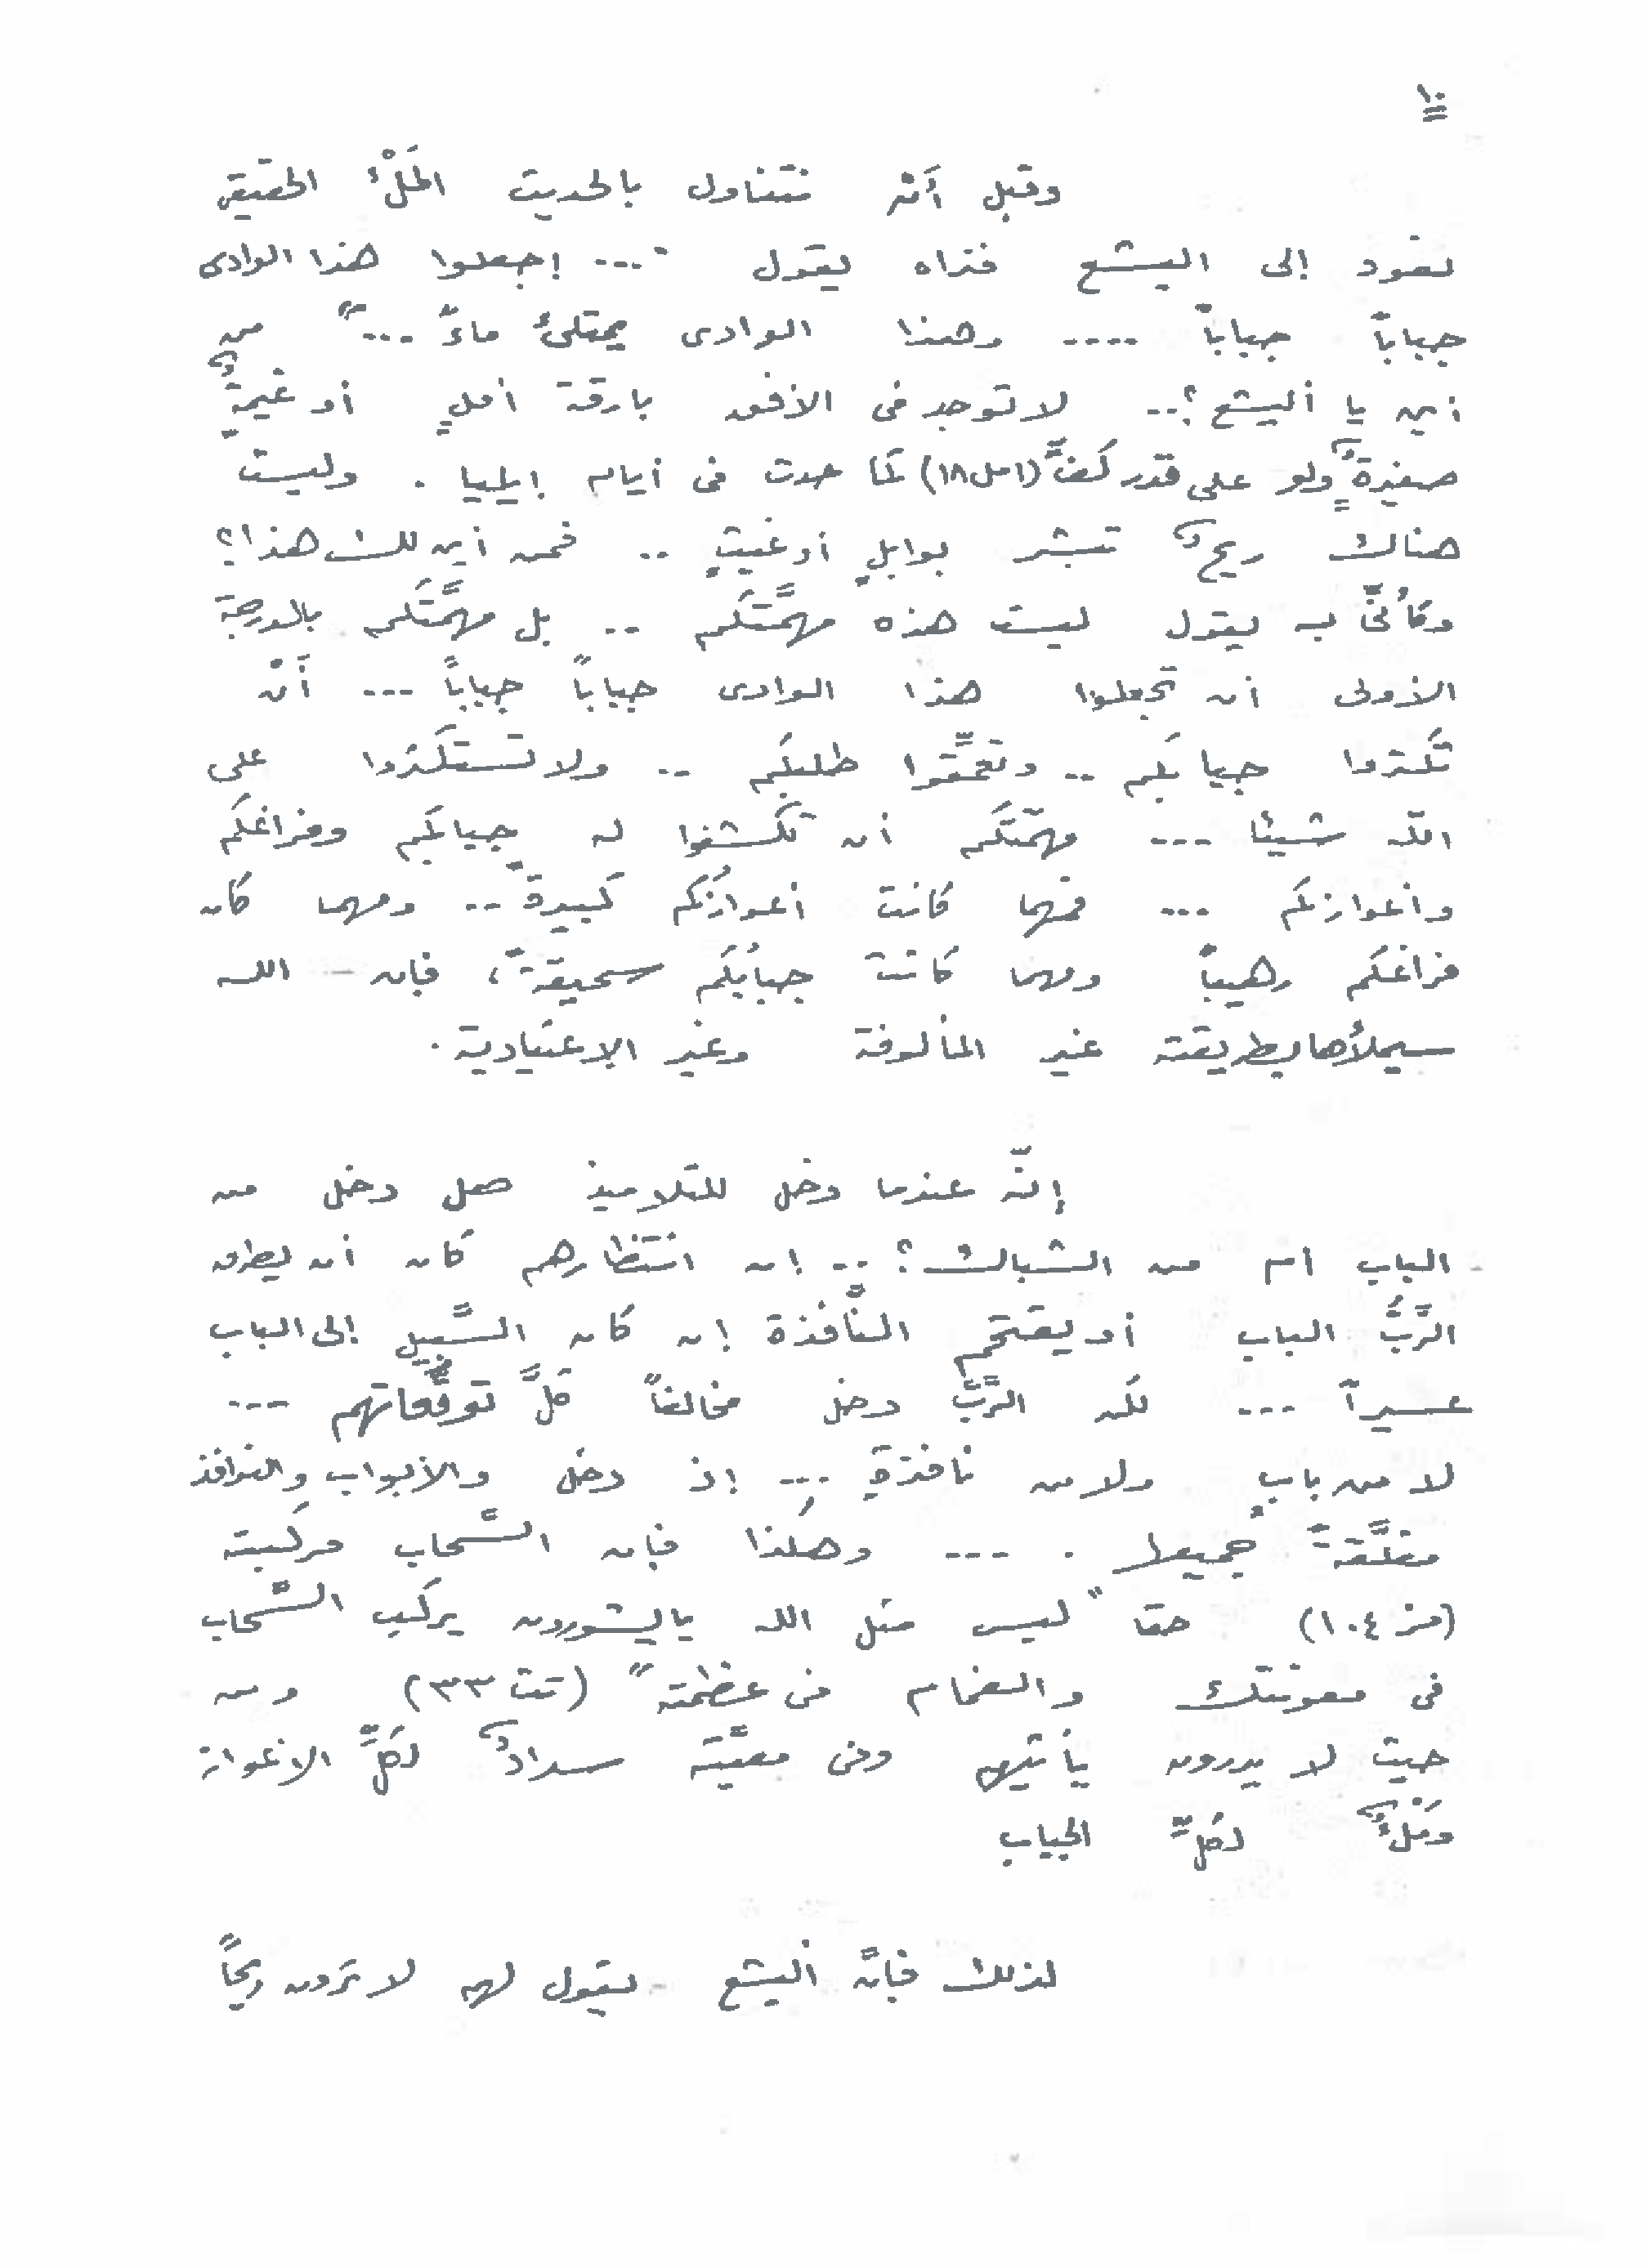 ١٠
وقبل أنْ نتناول بالحديث المَلْءُ الحقيقى
نعود إلى اليشع فنراه يقول "... إجعلوا هذا الوادى
جباباً جباباً .... وهذا الوادى يمتلئُ ماءً ..." من
أين يا أليشع ؟.. لا توجد فى الأفق بارقة أملٍ أو غيمةٌ
صغيرةٌ ولو على قدر كفٍّ (١مل١٨) كما حدث فى أيام إيليا . وليست
هناك ريحٌ تبشر بوابلٍ أو غيثٍ .. فمن أين لك هذا؟
وكأنُّى به يقول ليست هذه مهمَّتَكم .. بل مهمَّتَكم بالدرجة
الأولى أن تجعلوا هذا الوادى جباباً جباباً ... أنْ
تكثروا جبابكم .. وتعمِّقوا طلبكم .. ولا تستكثروا على
الله شيئا ... مهمّتكم أن تكشفوا له جبابكم وفراغكم
وأعوازكم ... فمهما كانت أعوازُكم كبيرةً .. ومهما كان
فراغكم رهيباً ومهما كانت جبابُكم سحيقةً ، فإن الله
سيملأُها بطريقته غير المألوفة وغير الإعتيادية .
إنّه عندما دخل للتلاميذ هل دخل من
الباب أم من الشباك ؟ .. إن انتظارهم كان أن يطرق
الرَّبُّ الباب أو يقتحم النَّافذة إن كان السَّبيل إلى الباب
عسيراً ... لكن الرَّبَّ دخل مخالفاً كلَّ توقُّعاتهم ...
لا من بابٍ ولا من نافذةٍ ... إذ دخل والأبواب والنوافذ
مغلَّقةً جميعها . ... وهكذا فإن السَّحاب مركبته
(مز ١٠٤) حقا "ليس مثل الله يا يشورون يركب السَّحاب
فى معونتك والغمام فى عظمته" (تث ٣٣) ومن
حيث لا يدرون يأتيهم وفى معيَّته سدادٌ لكلِّ الأعواز
ومَلْءٌ لكلِّ الجباب
لذلك فإنَّ أليشع يقول لهم لا ترون ريحاً